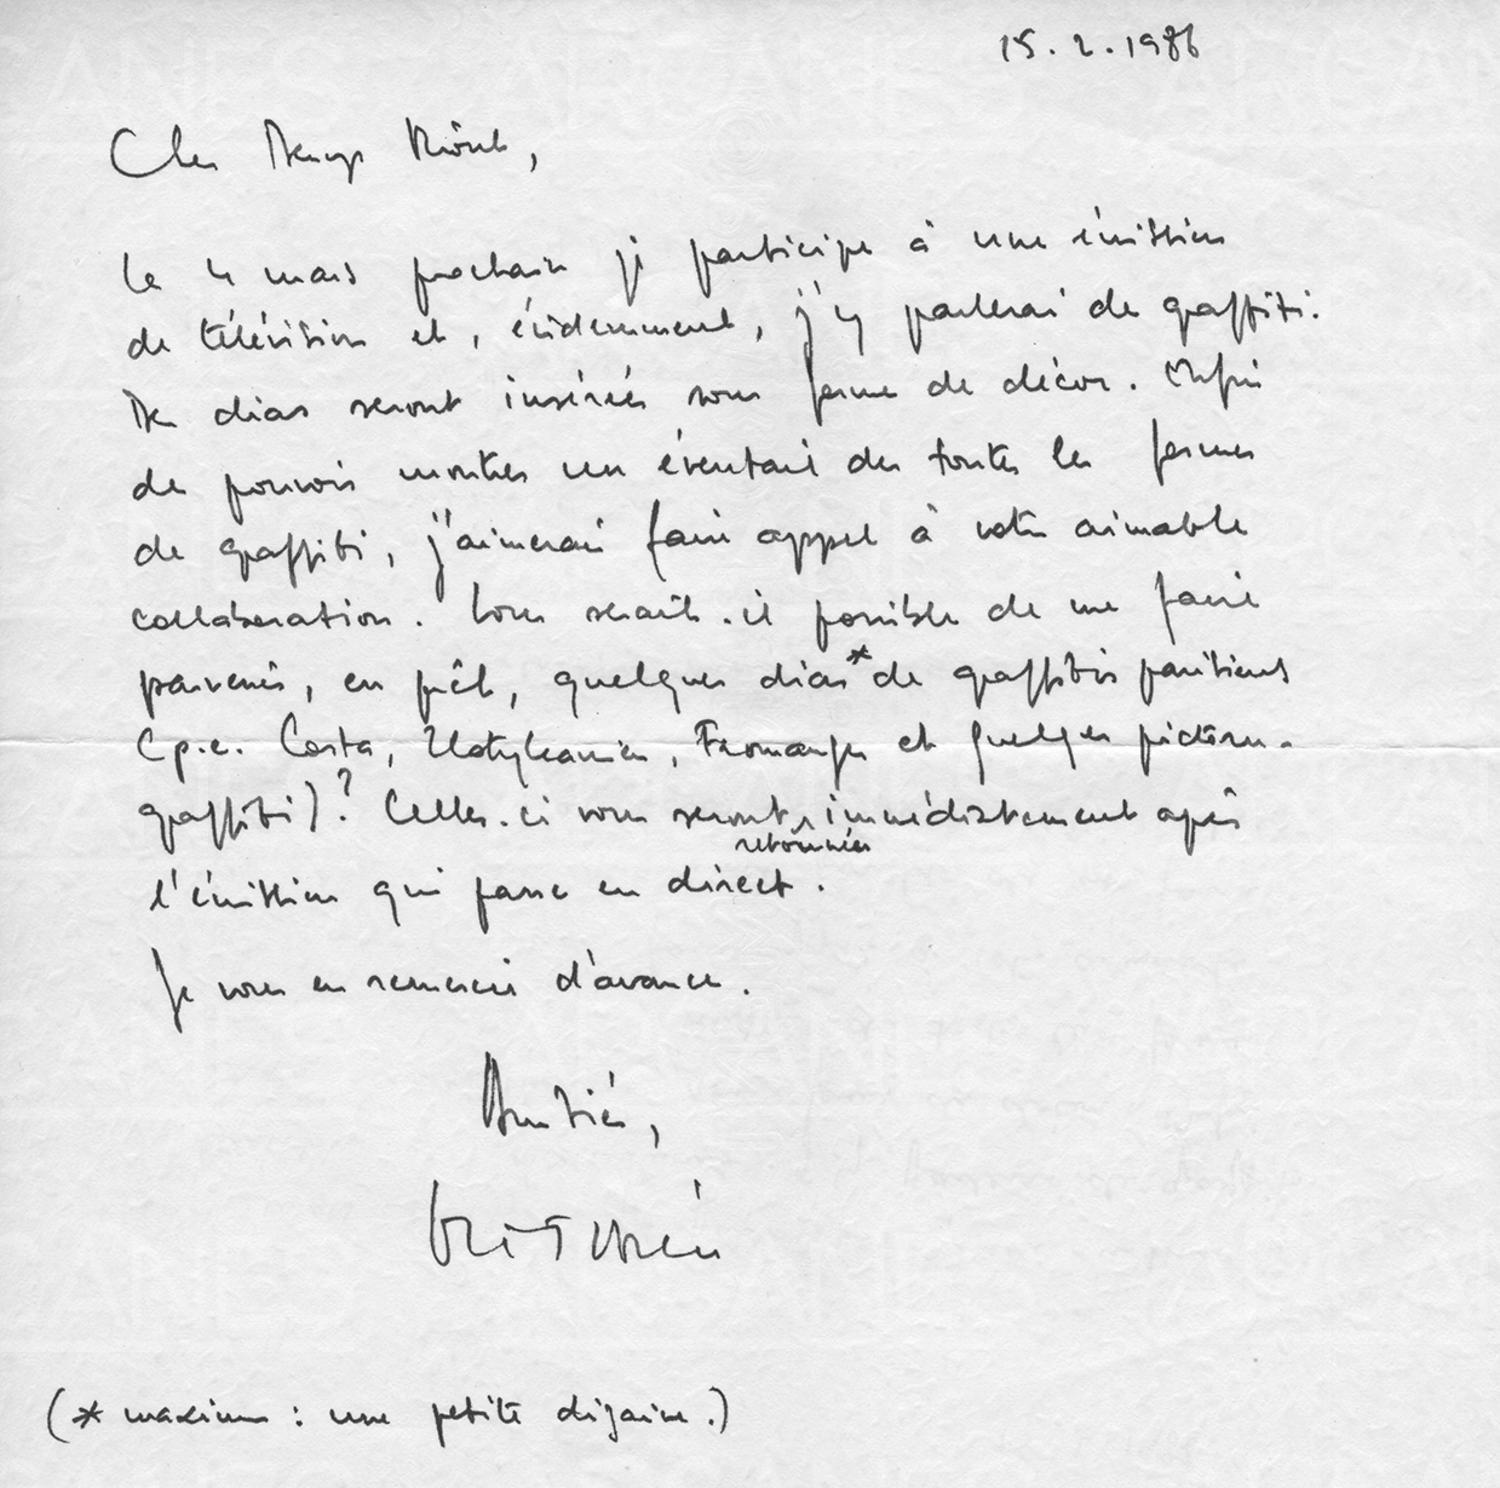 15.2.1986
Cher Denys Riout,
Le 4 mars prochain je participe à une émission
de télévision et, évidemment, j'y parlerai de graffiti.
Des dias seront insérées sous forme de décor. Afin
de pouvoir montrer un éventail de toutes les formes
de graffiti, j'aimerai faire appel à votre aimable
collaboration. Vous serait-il possible de me faire
parvenir, en prêt, quelques dias* de graffitis parisiens
(p.e. Costa, Fromanger et quelques
graffiti)? Celles-ci vous seront retournées immédiatement après
l'émission qui passe en direct.
Je vous en remercie d'avance.
Amitiés,
(* maximum : une petite dizaine.)